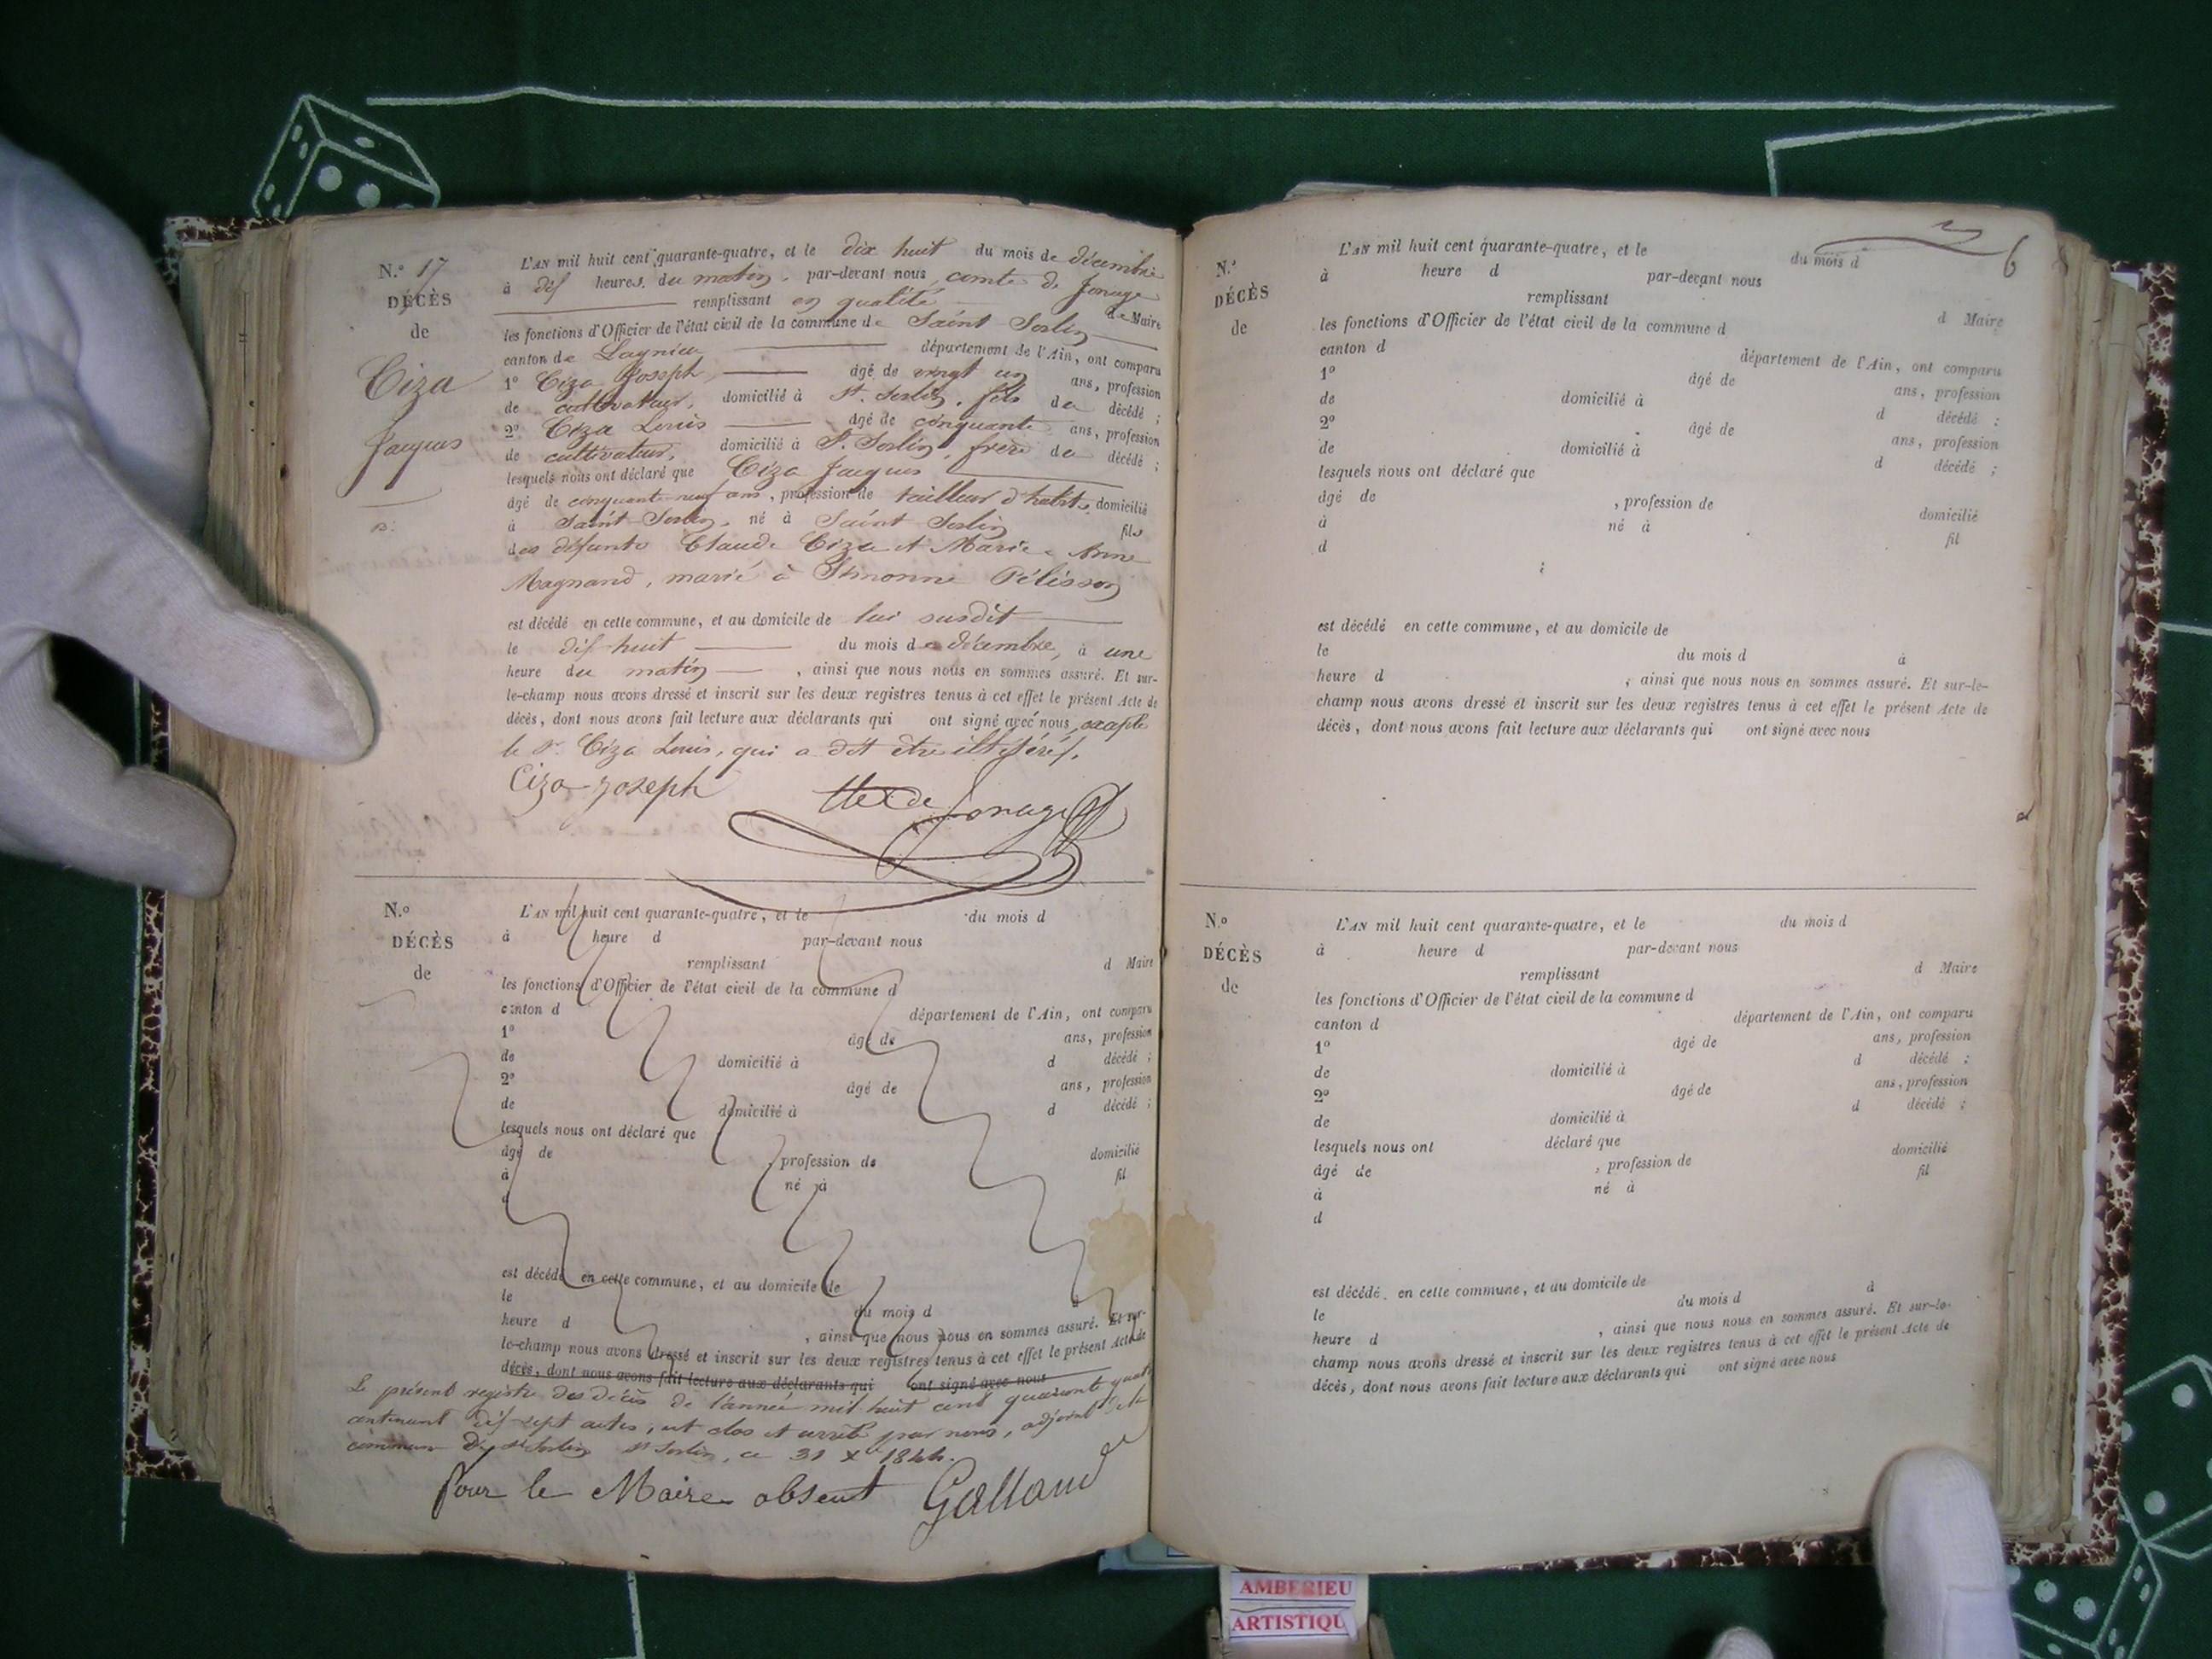 N.° 17
DÉCÈS
de
Ciza
Jacques
L'AN mil huit cent quarante-quatre, et le dix huit du mois de décembre
à dix heures du matin, par-devant nous comte de Jonage
remplissant en qualité de Maire
les fonctions d'Officier de l'état civil de la commune de Saint Sorlin
canton de Lagnieu département de l'Ain, ont comparu
1° Ciza Joseph, âgé de vingt un ans, profession
de cultivateur, domicilié à St. Sorlin, fils du décédé ;
2° Ciza Louis âgé de cinquante ans, profession
de cultivateur, domicilié à St. Sorlin, frère du décédé ;
lesquels nous ont déclaré que Ciza Jacques
âgé de cinquante-neuf ans, profession de tailleur d'habits, domicilié
à Saint-Sorlin, né à Saint Sorlin fils
des défunts Claude Ciza et Marie-Anne
Magnand, marié à Simonne Pélisson
est décédé en cette commune, et au domicile de lui susdit
le dix huit du mois de décembre, à une
heure du matin, ainsi que nous nous en sommes assuré. Et sur-
le-champ nous avons dressé et inscrit sur les deux registres tenus à cet effet le présent Acte de
décès, dont nous avons fait lecture aux déclarants qui ont signé avec nous, excepté
le Sr. Ciza Louis, qui a dit être illétéré.
Ciza Joseph de Jonage
N.°
DÉCÈS
de
L'AN mil huit cent quarante-quatre, et le du mois d
à heure d par-devant nous
remplissant d Maire
les fonctions d'Officier de l'état civil de la commune d
canton d département de l'Ain, ont comparu
1° âgé de ans, profession
de domicilié à d décédé ;
2° âgé de ans, profession
de domicilié à d décédé ;
lesquels nous ont déclaré que
âgé de profession de domicilié
à né à fil
d
est décédé en cette commune, et au domicile de
le du mois d à
heure d , ainsi que nous nous en sommes assuré. Et sur-
le-champ nous avons dressé et inscrit sur les deux registres tenus à cet effet le présent Acte de
décès, dont nous avons fait lecture aux déclarants qui ont signé avec nous
Le présent registre des décès de l'année mil huit cent quarante quatre
contenant dix-sept actes, est clos et arrêté par nous, adjoint de la
commune de St Sorlin St Sorlin, ce 31 Xbre 1844.
Pour le Maire absent Galland
6
N.°
DÉCÈS
de
L'AN mil huit cent quarante-quatre, et le du mois d
à heure d par-devant nous
remplissant d Maire
les fonctions d'Officier de l'état civil de la commune d
canton d département de l'Ain, ont comparu
1° âgé de ans, profession
de domicilié à d décédé ;
2° âgé de ans, profession
de domicilié à d décédé ;
lesquels nous ont déclaré que
âgé de , profession de domicilié
à né à fil
d
est décédé en cette commune, et au domicile de
le du mois d à
heure d , ainsi que nous nous en sommes assuré. Et sur-le-
champ nous avons dressé et inscrit sur les deux registres tenus à cet effet le présent Acte de
décès, dont nous avons fait lecture aux déclarants qui ont signé avec nous
N.°
DÉCÈS
de
L'AN mil huit cent quarante-quatre, et le du mois d
à heure d par-devant nous
remplissant d Maire
les fonctions d'Officier de l'état civil de la commune d
canton d département de l'Ain, ont comparu
1° âgé de ans, profession
de domicilié à d décédé ;
2° âgé de ans, profession
de domicilié à d décédé ;
lesquels nous ont déclaré que
âgé de , profession de domicilié
à né à fil
d
est décédé en cette commune, et au domicile de
le du mois d à
heure d , ainsi que nous nous en sommes assuré. Et sur-le-
champ nous avons dressé et inscrit sur les deux registres tenus à cet effet le présent Acte de
décès, dont nous avons fait lecture aux déclarants qui ont signé avec nous
AMBERIEU
ARTISTIQU